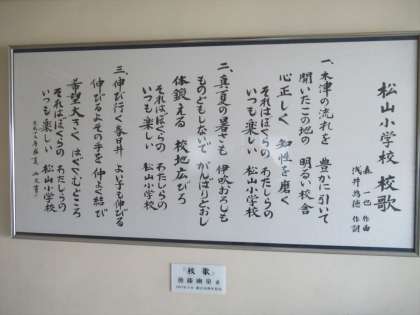 松山小学校 校歌
森 一也 作曲
浅井為徳 作詞
一、木津の流れを 豊かに引いて
開いたこの地の 明るい校舎
心正しく 知性を磨く
それはぼくらの わたしらの
いつも楽しい 松山小学校
二、真夏の暑さも 伊吹おろしも
ものともしないで がんばりとおし
体鍛える 校地広びろ
それはぼくらの わたしらの
いつも楽しい 松山小学校
三、伸び行く春日井 よい子も伸びる
伸びるよその手を 仲よく結び
希望大きく はぐくむところ
それはぼくらの わたしらの
いつも楽しい 松山小学校
校歌